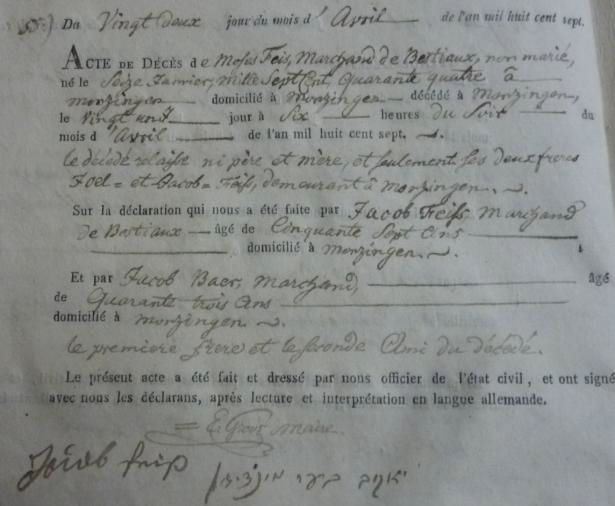 Du Vingt deux jour du mois d'Avril de l'an mil huit cent sept.
ACTE DE DÉCÈS de Moses Feis, Marchand de Bestiaux, non marié,
né le Seize Janvier, mille Sept Cent Quarante quatre à
Monzingen domicilié à Monzingen décédé à Monzingen,
le Vingt un jour à Six heures du Soir du
mois d'Avril de l'an mil huit cent sept.
le décédé relaisse ni père et mère, et seulement ses deux freres
Joel = et Jacob = Feiss, demeurant à Monzingen.
Sur la déclaration qui nous a été faite par Jacob Feiss Marchand
de Bestiaux âgé de Cinquante Sept Ans
domicilié à Monzingen.
Et par Jacob Baer, Marchand, âgé
de Quarante trois Ans
domicilié à Monzingen.
le premiere frere et le seconde Ami du décédé.
Le présent acte a été fait et dressé par nous officier de l'état civil, et ont signé
avec nous les déclarans, après lecture et interprétation en langue allemande.
Maire.
Jacob
יאקב